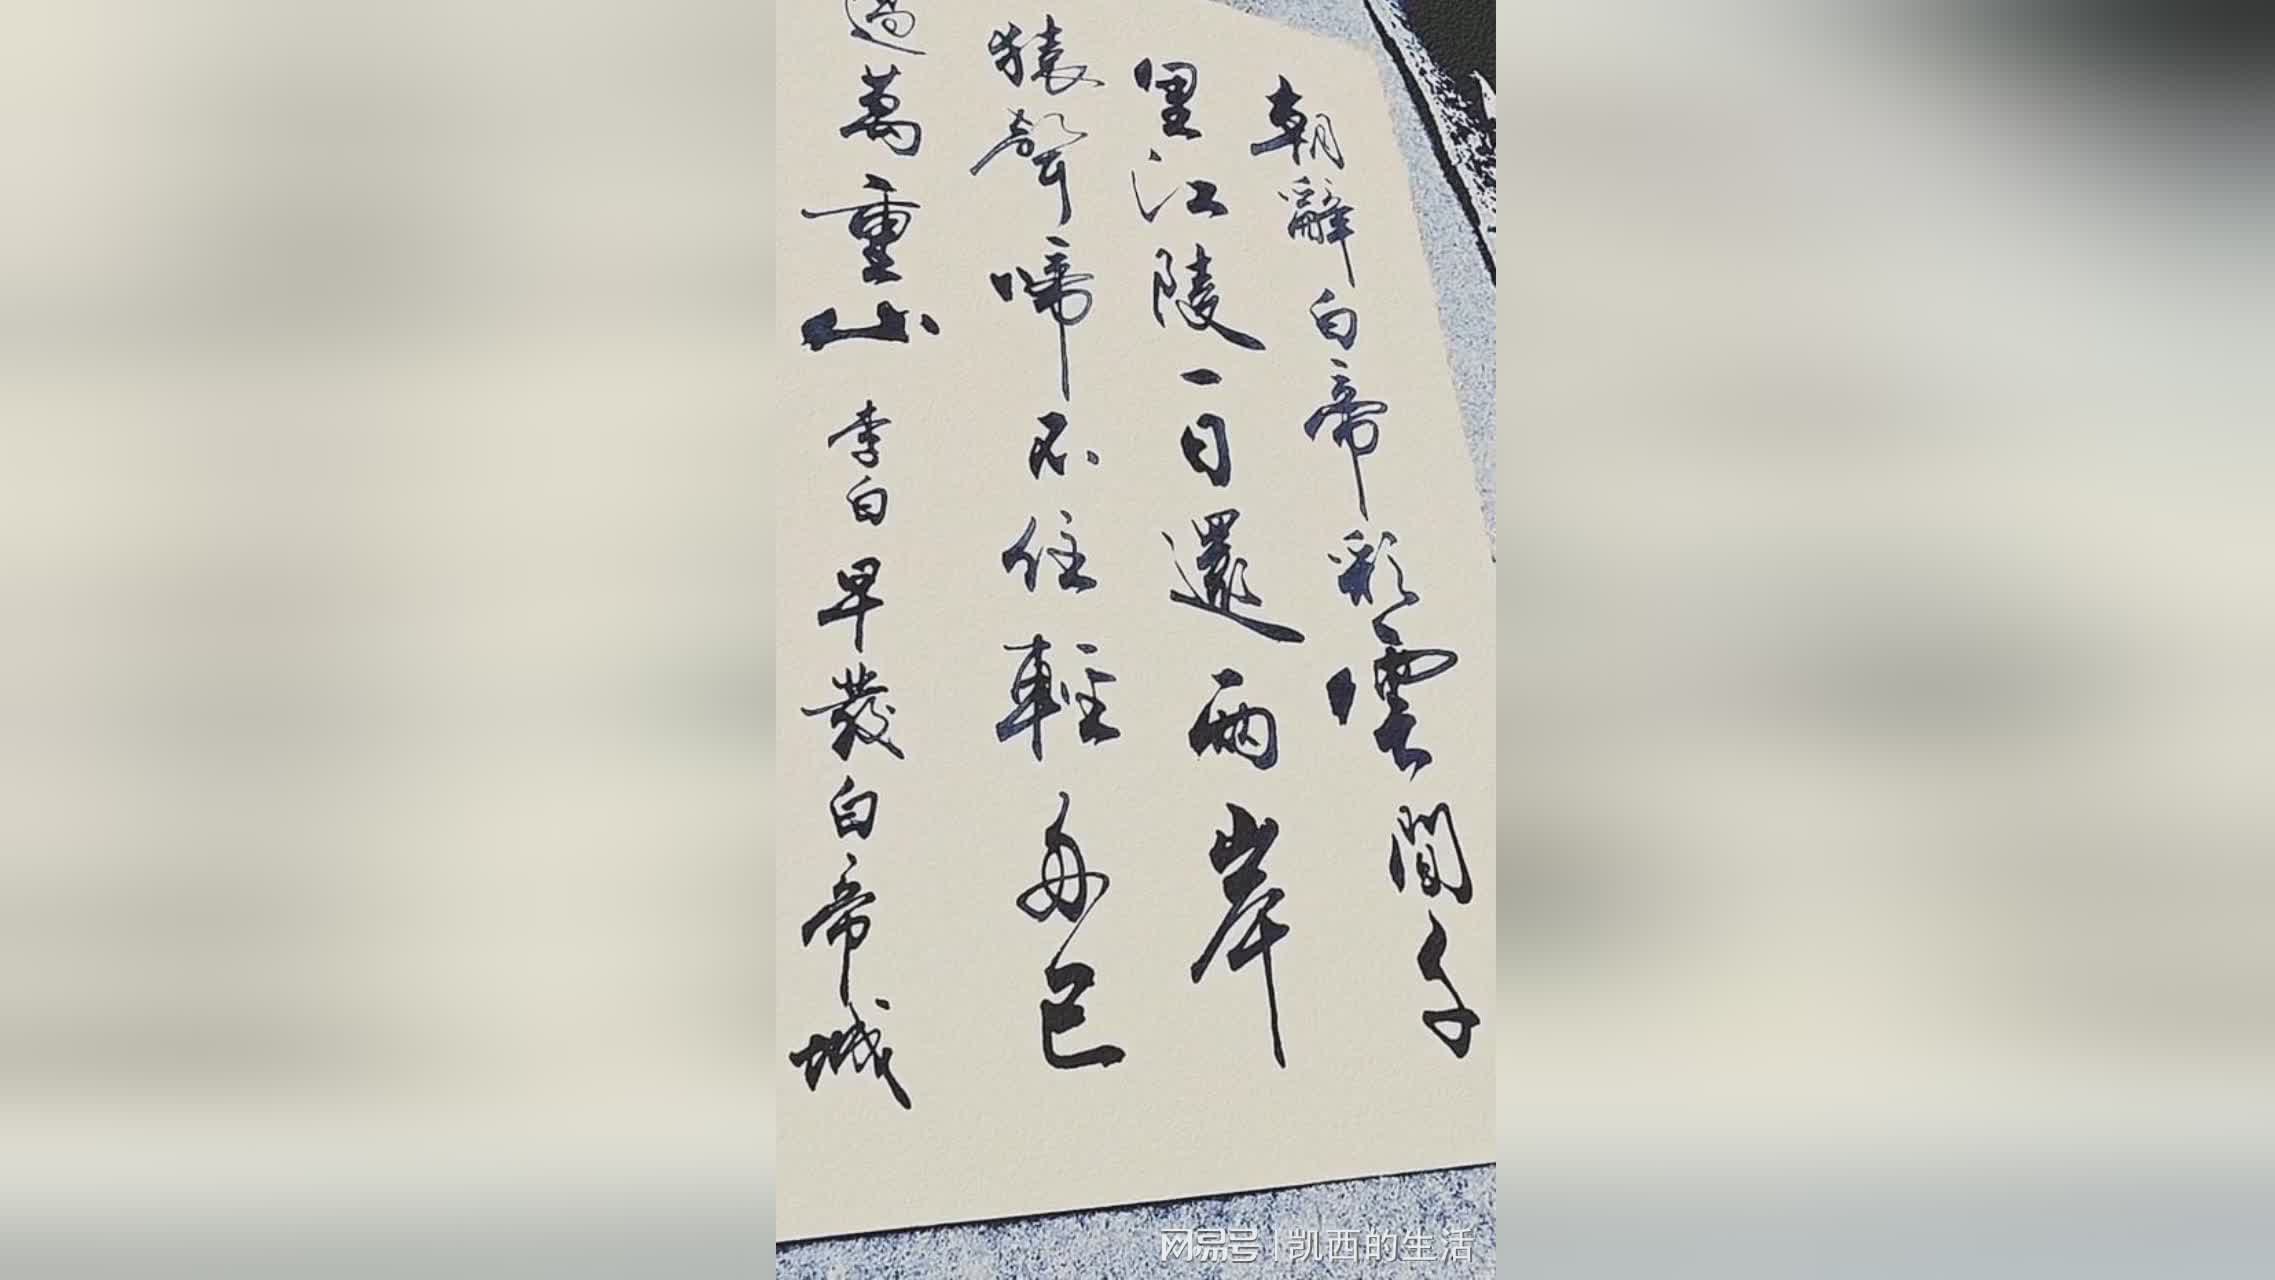 朝辭白帝彩雲間千
里江陵一日還兩岸
猿聲啼不住輕舟已
過萬重山 李白 早發白帝城
网易号 | 凯西的生活